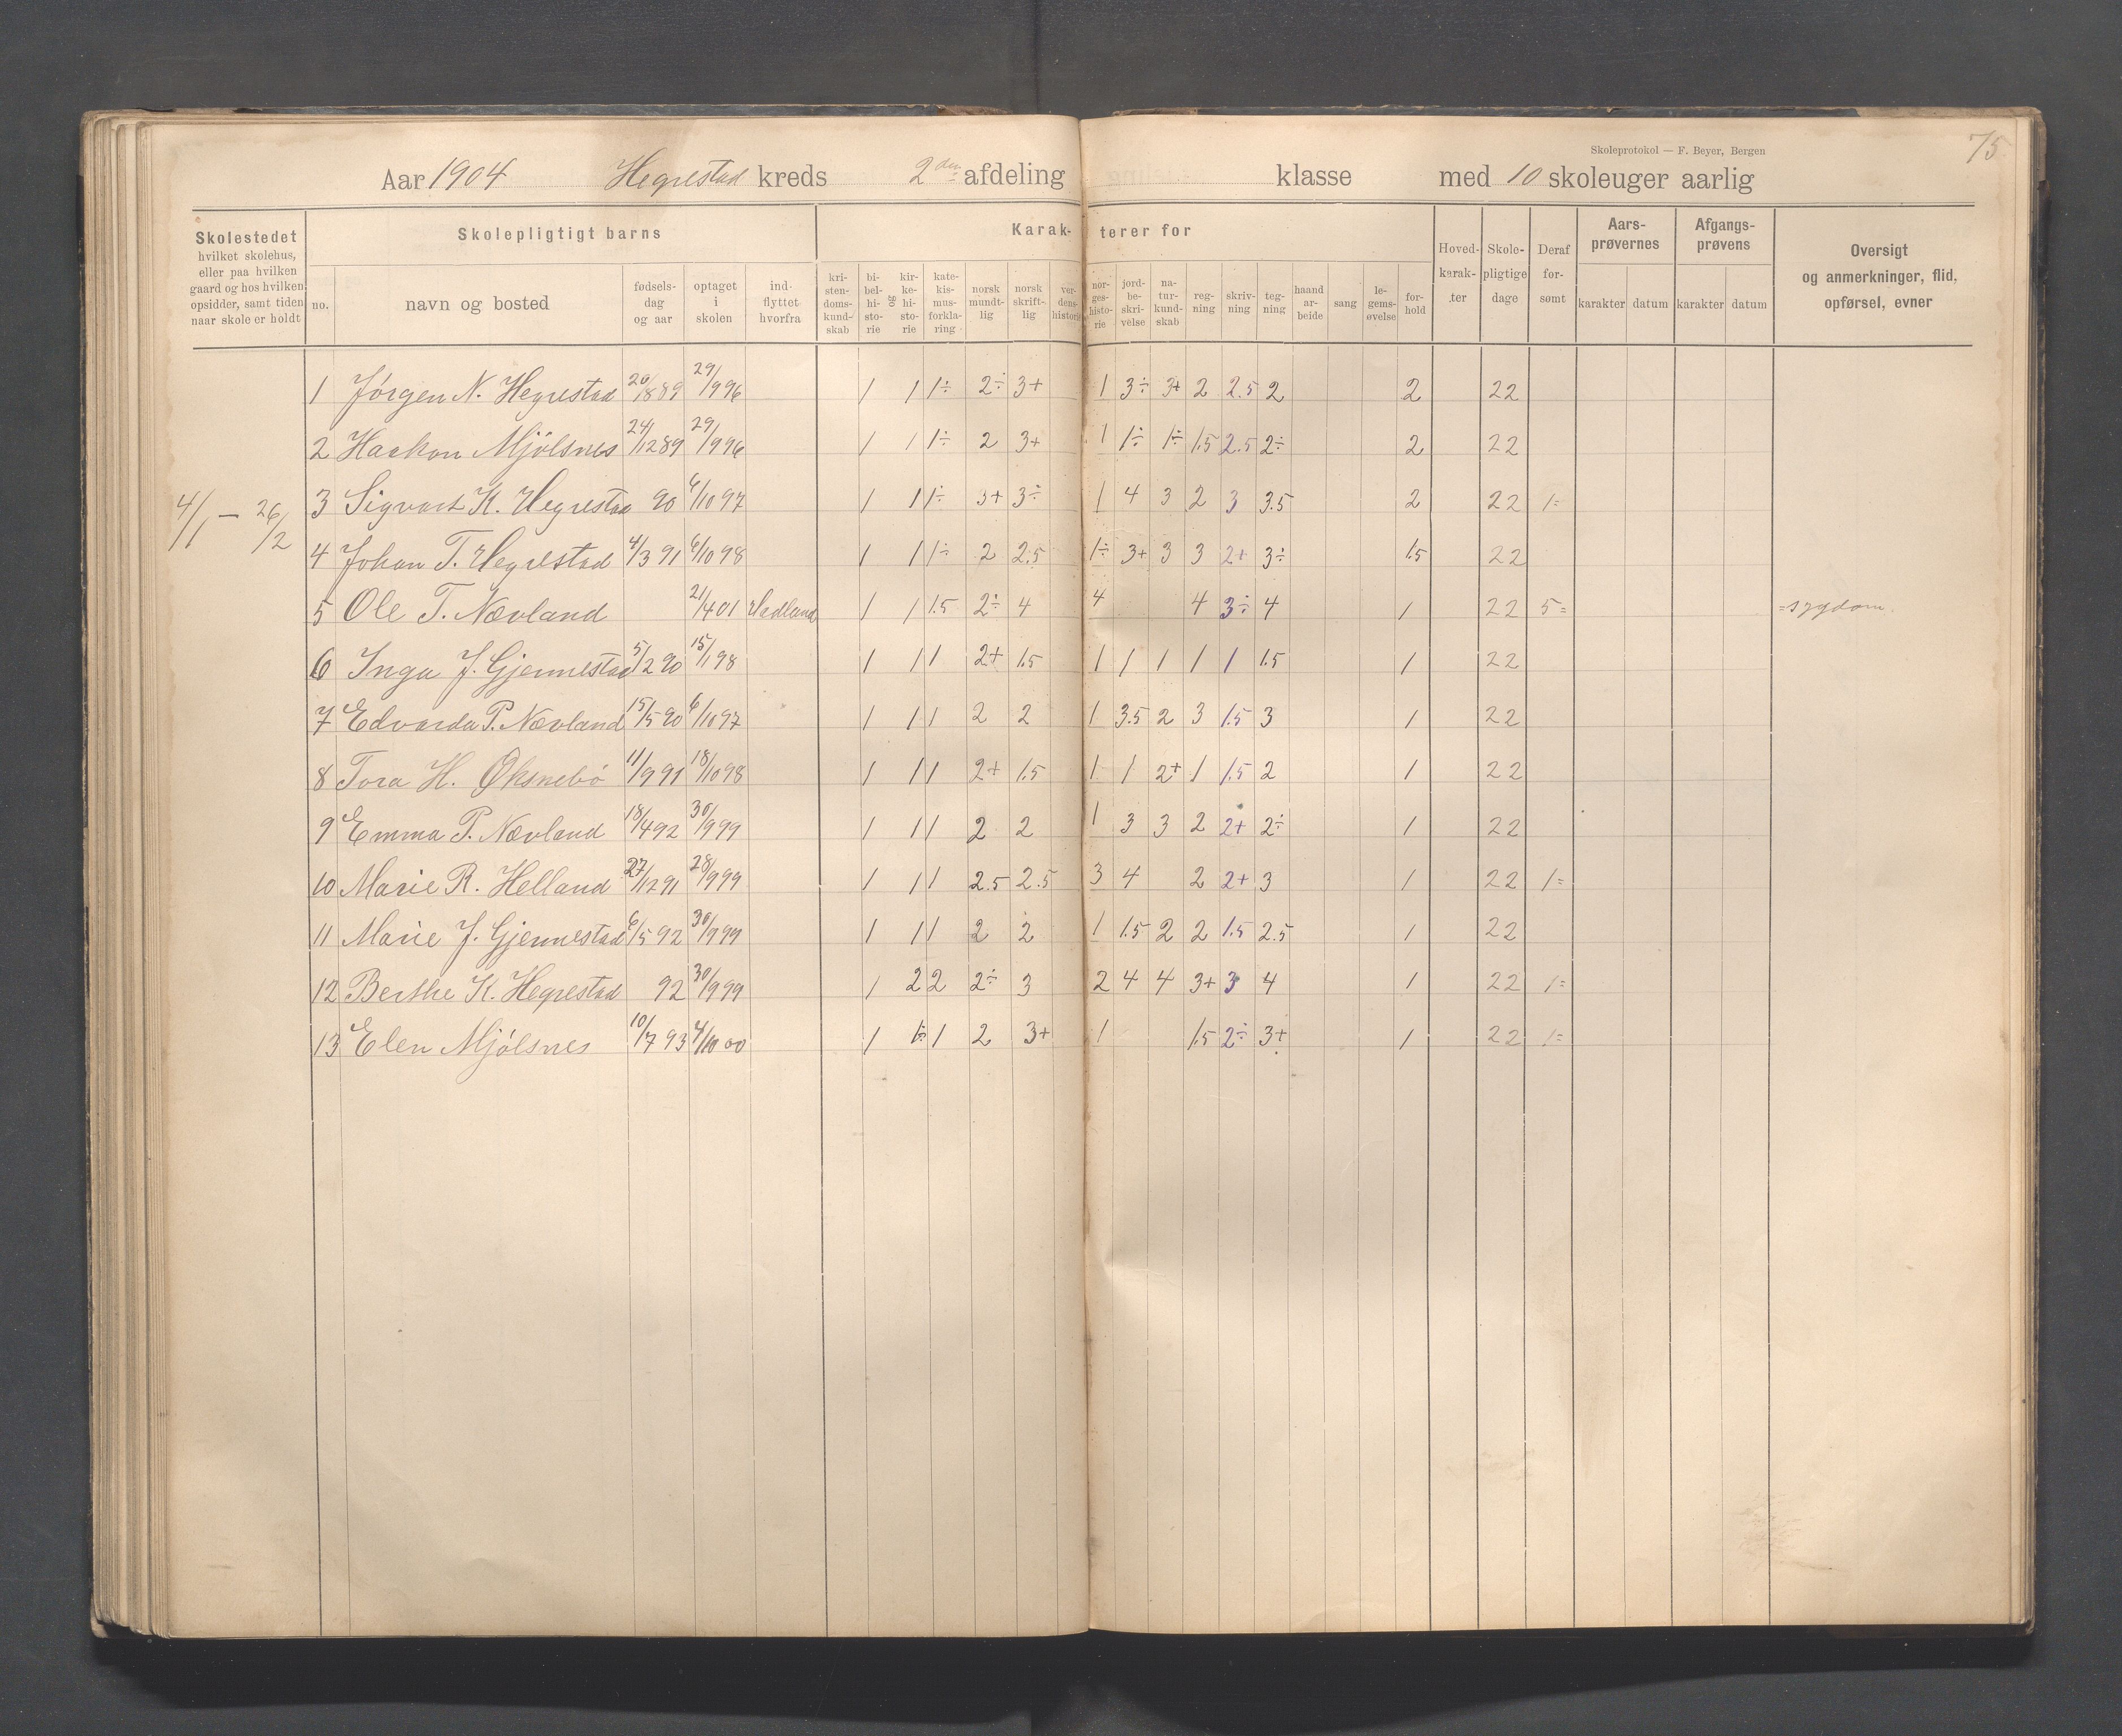 75
Skoleprotokol — F. Beyer, Bergen
Aar 1904 Hegrestad kreds 2den afdeling klasse med 10 skoleuger aarlig
Skolestedet hvilket skolehus, eller paa hvilken gaard og hos hvilken opsidder, samt tiden naar skole er holdt
Skolepligtigt barns
Karakterer for
no. navn og bosted fødsels-dag og aar optaget i skolen ind-flyttet hvorfra
kri-sten-doms-kund-skab bi-bel-hi-sto-rie og kir-ke-hi-sto-rie kate-kis-mus-forkla-ring norsk mundt-lig norsk skrift-lig ver-dens-historie nor-ges-histo-rie jord-be-skri-velse na-tur-kund-skab reg-ning skriv-ning teg-ning haand ar-beide sang le-gems-øvelse for-hold
Hoved-karak-ter Skole-pligtige dage Deraf for-sømt
Aars-prøvernes karakter datum
Afgangs-prøvens karakter datum
Oversigt og anmerkninger, flid, opførsel, evner
4/1 — 26/2
1 Jørgen N. Hegrestad 20/8 89 29/9 96 1 1 1÷ 2÷ 3+ 1 3÷ 3+ 2 2.5 2 2 22
2 Haakon Mjölsnes 24/12 89 29/9 96 1 1 1÷ 2 3+ 1 1÷ 1÷ 1.5 2.5 2÷ 2 22
3 Sigvart K. Hegrestad 90 6/10 97 1 1 1÷ 3+ 3÷ 1 4 3 2 3 3.5 2 22 1=
4 Johan T. Hegrestad 4/3 91 6/10 98 1 1 1÷ 2 2.5 1÷ 3+ 3 3 2+ 3÷ 1.5 22
5 Ole T. Nævland 21/4 01 Hadland 1 1 1.5 2÷ 4 4 4 3÷ 4 1 22 5= =sygdom.
6 Inga J. Gjermestad 5/2 90 15/1 98 1 1 1 2+ 1.5 1 1 1 1 1 1.5 1 22
7 Edvarda P. Nævland 15/5 90 6/10 97 1 1 1 2 2 1 3.5 2 3 1.5 3 1 22
8 Tora H. Øksnebö 11/9 91 18/10 98 1 1 1 2+ 1.5 1 1 2+ 1 1.5 2 1 22
9 Emma P. Nævland 18/4 92 30/9 99 1 1 1 2 2 1 3 3 2 2+ 2÷ 1 22
10 Marie R. Helland 27/12 91 28/9 99 1 1 1 2.5 2.5 3 4 2 2+ 3 1 22 1=
11 Marie J. Gjermestad 6/5 92 30/9 99 1 1 1 2 2 1 1.5 2 2 1.5 2.5 1 22
12 Berthe K. Hegrestad 92 30/9 99 1 2 2 2÷ 3 2 4 4 3+ 3 4 1 22 1=
13 Elen Mjólsnes 10/7 93 4/10 00 1 1÷ 1 2 3+ 1 1.5 2÷ 3+ 1 22 1=